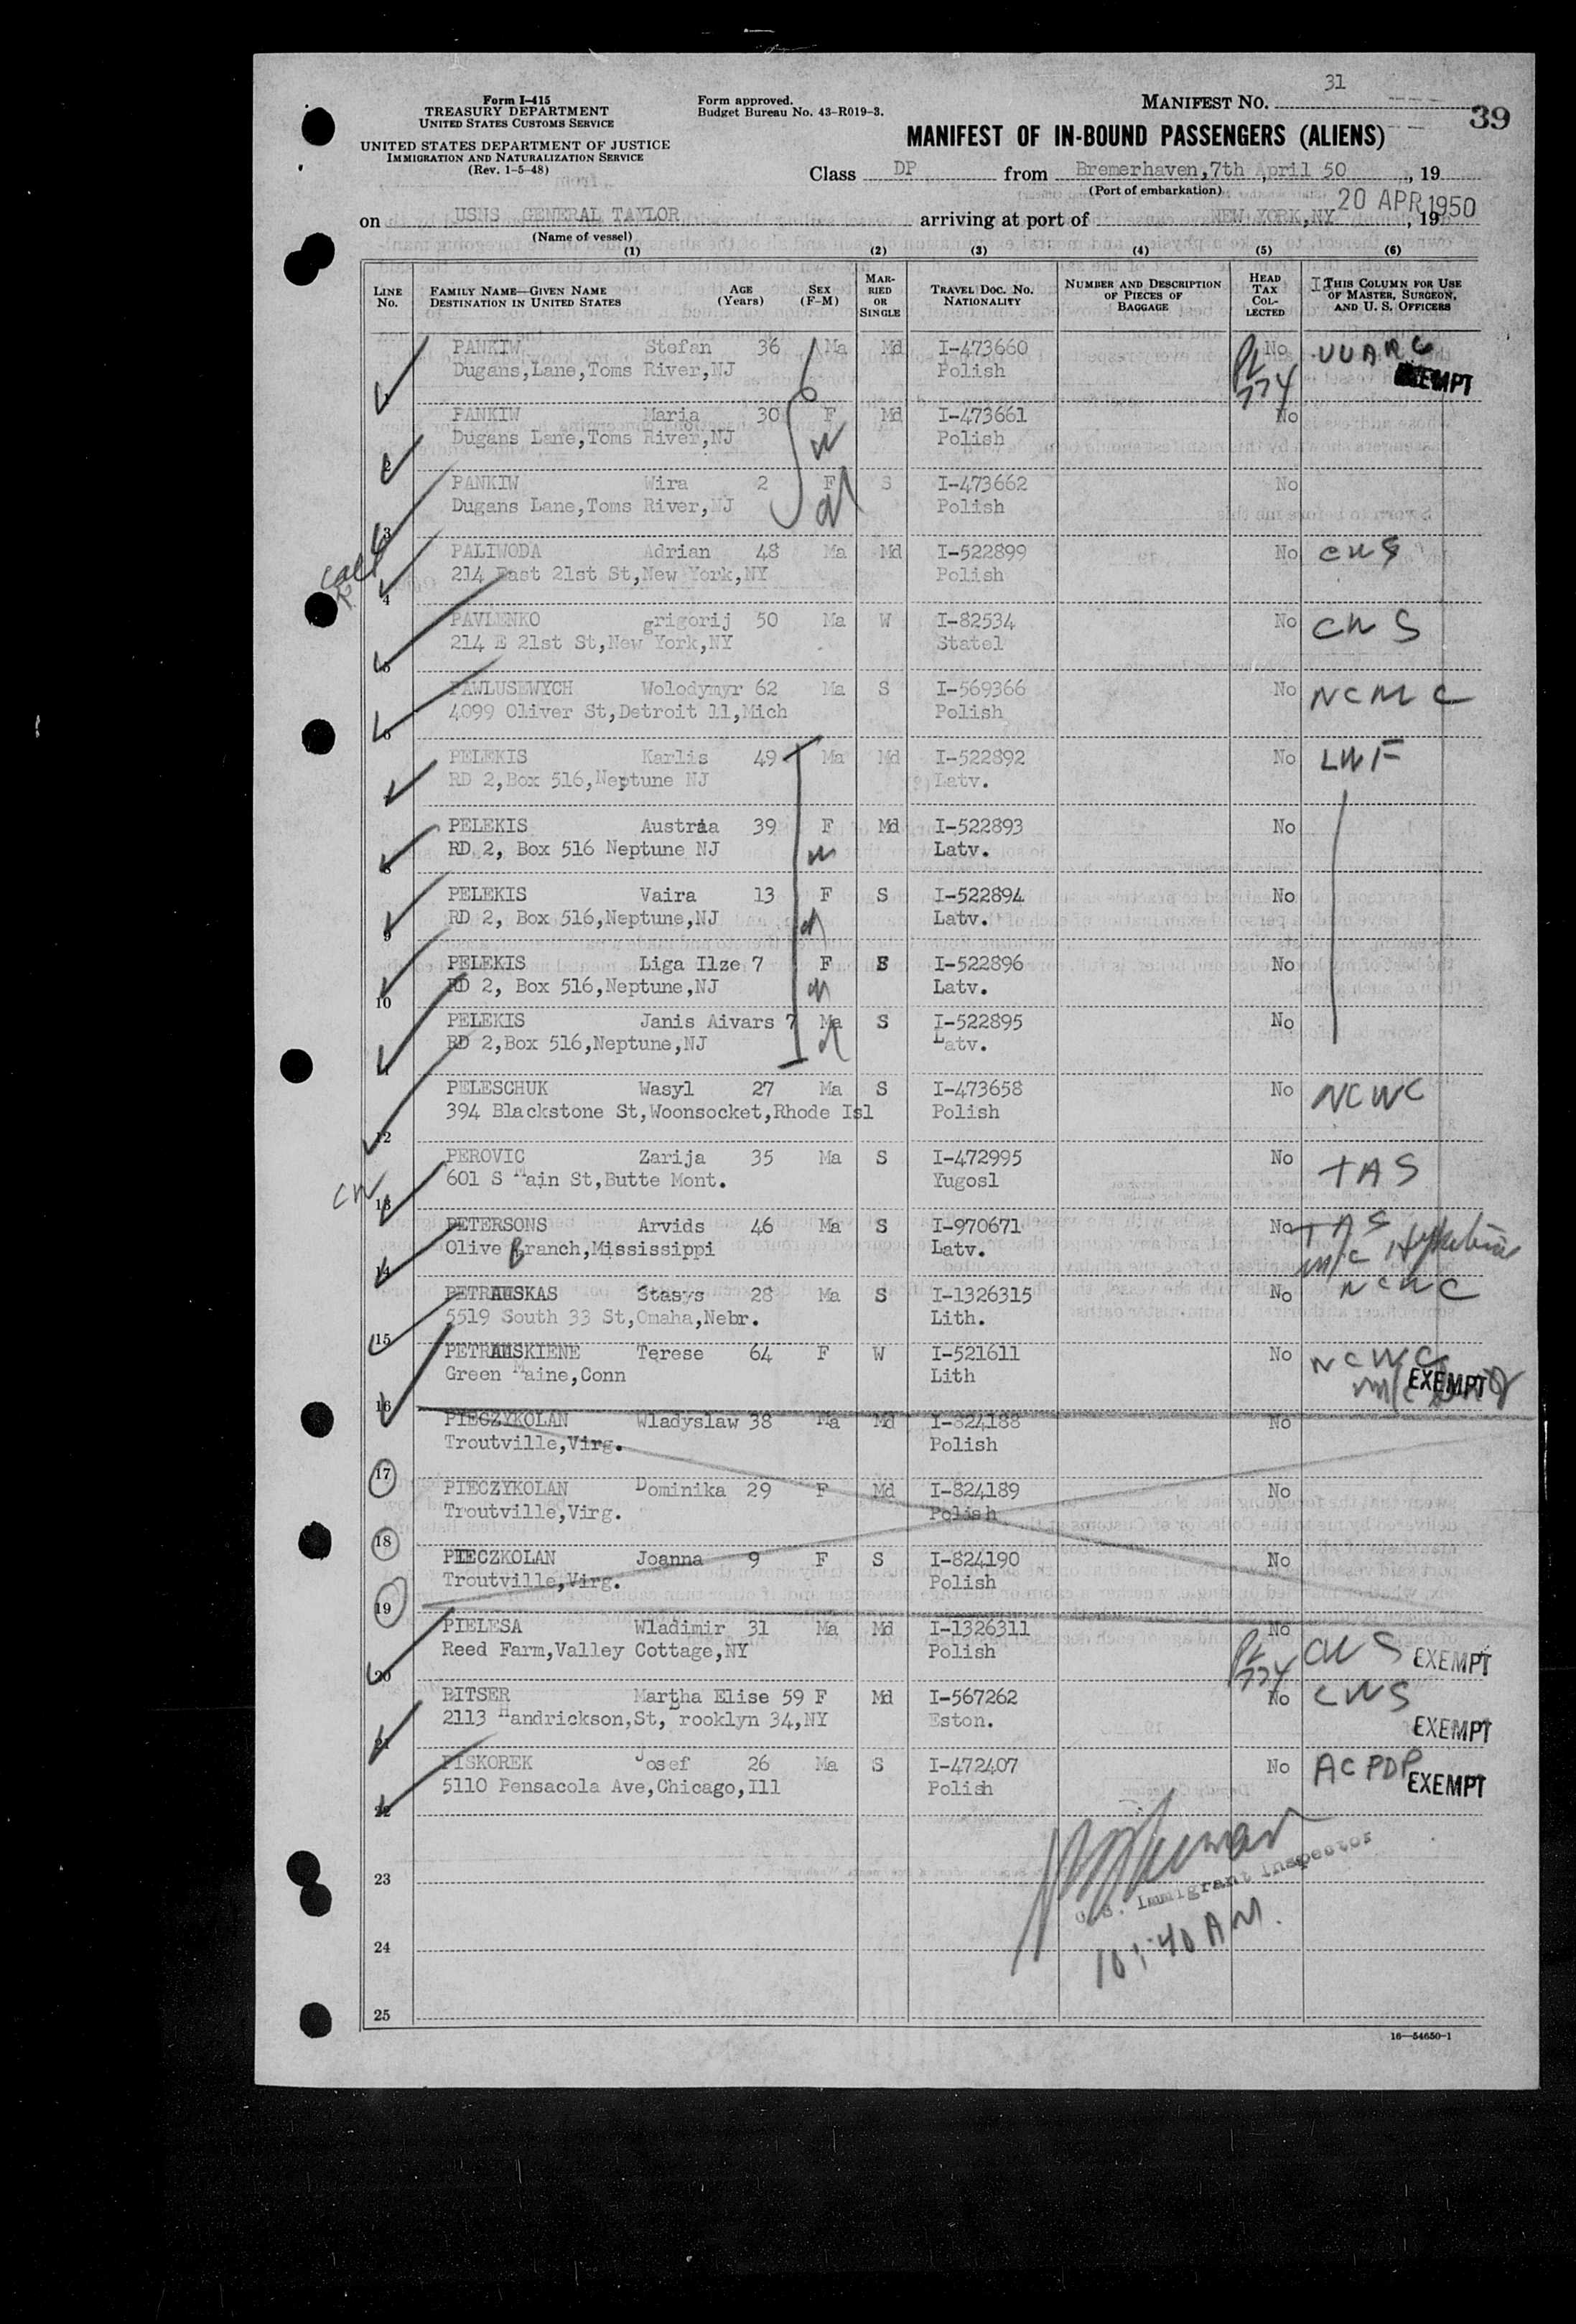 31
Form I-415
TREASURY DEPARTMENT
UNITED STATES CUSTOMS SERVICE
UNITED STATES DEPARTMENT OF JUSTICE
IMMIGRATION AND NATURALIZATION SERVICE
(Rev. 1-5-48)
Form approved.
Budget Bureau No. 43-R019-3.
MANIFEST NO.
39
MANIFEST OF IN-BOUND PASSENGERS (ALIENS)
Class DP from Bremerhaven,7th April 50, 19
(Port of embarkation)
20 APR 1950
on USNS GENERAL TAYLOR arriving at port of NEW YORK,NY, 19
(Name of vessel)
(1) (2) (3) (4) (5) (6)
LINE No. FAMILY NAME—GIVEN NAME DESTINATION IN UNITED STATES AGE (Years) SEX (F-M) MARRIED OR SINGLE TRAVEL DOC. NO. NATIONALITY NUMBER AND DESCRIPTION OF PIECES OF BAGGAGE HEAD TAX COLLECTED THIS COLUMN FOR USE OF MASTER, SURGEON, AND U. S. OFFICERS
PANKIW Stefan 36 Ma Md I-473660 No UUARC
Dugans,Lane,Toms River,NJ Polish PL 774 EXEMPT
PANKIW Maria 30 F Md I-473661 No
2 Dugans Lane,Toms River,NJ Polish
PANKIW Wira 2 F S I-473662 No
3 Dugans Lane,Toms River,NJ Polish
PALIWODA Adrian 48 Ma Md I-522899 No CWS
4 214 East 21st St,New York,NY Polish
PAVLENKO grigorij 50 Ma W I-82534 No CWS
5 214 E 21st St,New York,NY Statel
PAWLUSEWYCH Wolodymyr 62 Ma S I-569366 No NCWC
6 4099 Oliver St,Detroit 11,Mich Polish
PELEKIS Karlis 49 Ma Md I-522892 No LWF
7 RD 2,Box 516,Neptune NJ Latv.
PELEKIS Austria 39 F Md I-522893 No
8 RD 2, Box 516 Neptune NJ Latv.
PELEKIS Vaira 13 F S I-522894 No
9 RD 2, Box 516,Neptune,NJ Latv.
PELEKIS Liga Ilze 7 F S I-522896 No
10 RD 2, Box 516,Neptune,NJ Latv.
PELEKIS Janis Aivars 7 Ma S I-522895 No
11 RD 2,Box 516,Neptune,NJ Latv.
PELESCHUK Wasyl 27 Ma S I-473658 No NCWC
12 394 Blackstone St,Woonsocket,Rhode Isl Polish
PEROVIC Zarija 35 Ma S I-472995 No TAS
13 601 S Main St,Butte Mont. Yugosl
PETERSONS Arvids 46 Ma S I-970671 No TAS
14 Olive Branch,Mississippi Latv. m/c
PETRAUSKAS Stasys 28 Ma S I-1326315 No NCWC
15 5519 South 33 St,Omaha,Nebr. Lith.
PETRAUSKIENE Terese 64 F W I-521611 No NCWC
16 Green Maine,Conn Lith m/c EXEMPT
PIECZYKOLAN Wladyslaw 38 Ma Md I-824188 No
17 Troutville,Virg. Polish
PIECZYKOLAN Dominika 29 F Md I-824189 No
18 Troutville,Virg. Polish
PIECZKOLAN Joanna 9 F S I-824190 No
19 Troutville,Virg. Polish
PIELESA Wladimir 31 Ma Md I-1326311 No CWS
20 Reed Farm,Valley Cottage,NY Polish PL 774 EXEMPT
PITSER Martha Elise 59 F Md I-567262 No CWS
21 2113 Handrickson,St, Brooklyn 34,NY Eston. EXEMPT
PISKOREK Josef 26 Ma S I-472407 No ACPDP
22 5110 Pensacola Ave,Chicago,Ill Polish EXEMPT
23
U.S. Immigrant Inspector
24
10:40 AM.
25
16—54650-1